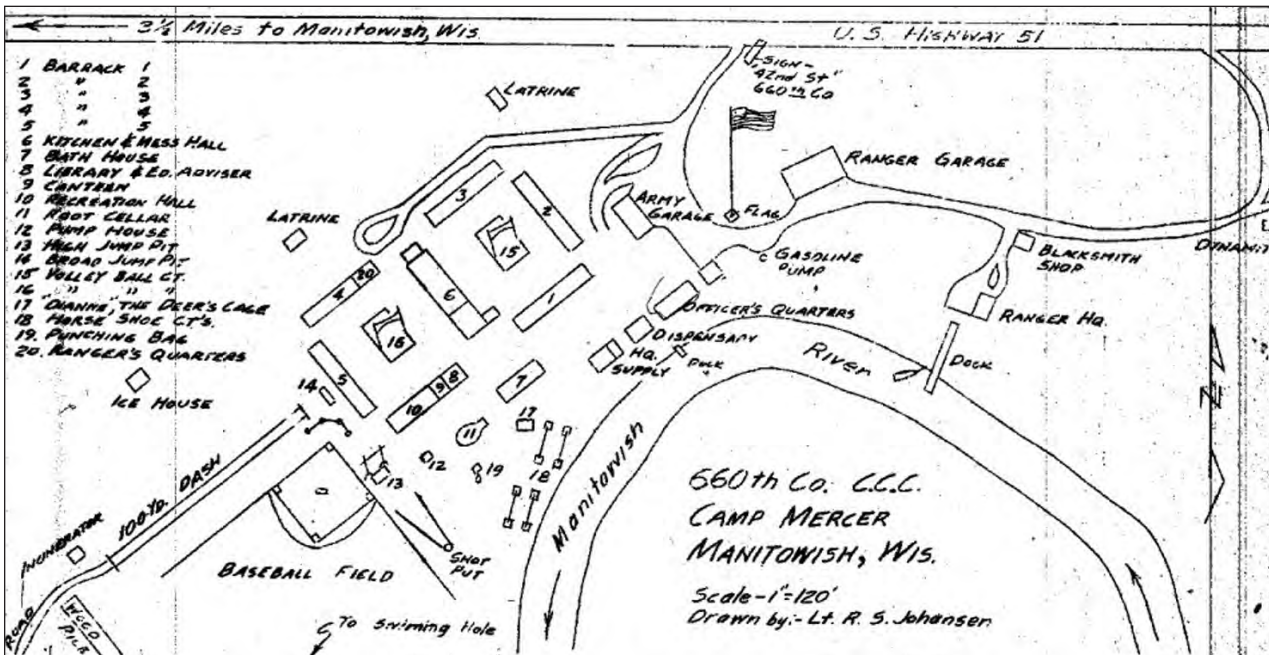 3½ Miles to Manitowish, Wis.
U. S. HIGHWAY 51
1 BARRACK 1
2 " 2
3 " 3
4 " 4
5 " 5
6 KITCHEN & MESS HALL
7 BATH HOUSE
8 LIBRARY & ED. ADVISER
9 CANTEEN
10 RECREATION HALL
11 ROOT CELLAR
12 PUMP HOUSE
13 HIGH JUMP PIT
14 BROAD JUMP PIT
15 VOLLEY BALL CT.
16 " " "
17 "DIANNE", THE DEER'S CAGE
18 HORSE SHOE CT'S.
19. PUNCHING BAG
20. RANGER'S QUARTERS
SIGN-
"42nd St"
660th Co
LATRINE
RANGER GARAGE
ARMY
GARAGE
FLAG
LATRINE
GASOLINE
PUMP
BLACKSMITH
SHOP
DYNAMIT
OFFICER'S QUARTERS
RANGER HQ.
DISPENSARY
HQ.
SUPPLY
DOCK
River
DOCK
3
2
15
20
4
6
1
16
5
14
9
8
10
7
11
17
12
19
13
18
ICE HOUSE
100 YD. DASH
Manitowish
INCINERATOR
SHOT
PUT
BASEBALL FIELD
ROAD
WOOD
PILE
To Swiming Hole
N
660th Co. C.C.C.
CAMP MERCER
MANITOWISH, WIS.
Scale-1"=120'
Drawn by:- Lt. R. S. Johansen